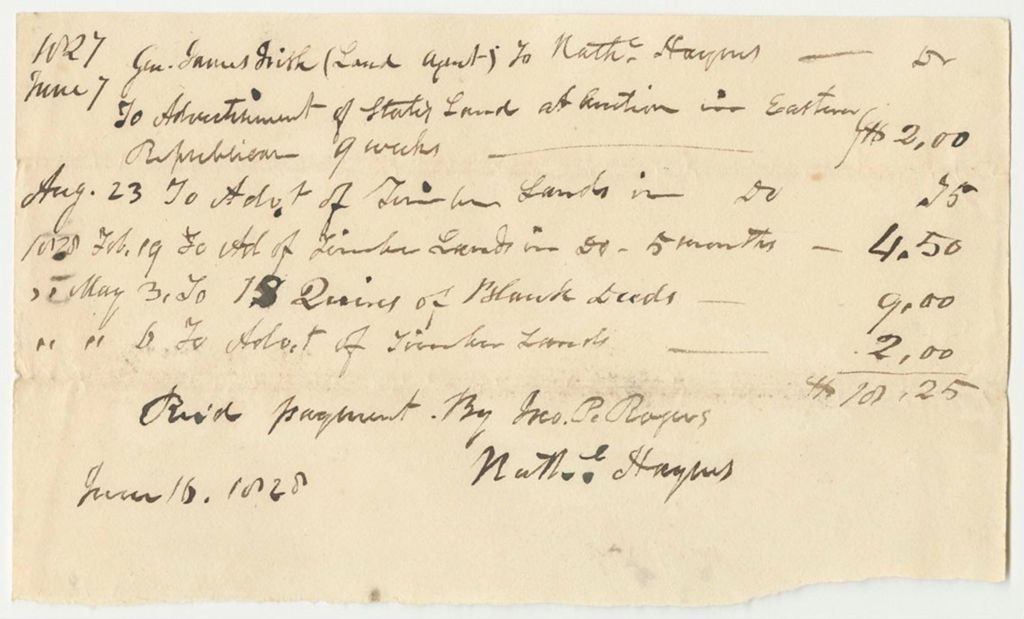 1827 Gen. James Irish (Land agent) To Nathl. Haynes — Dr
June 7
To Advertisment of State's Land at Auction in Eastern
Republican 9 weeks — $ 2,00
Aug. 23 To Advt of Timber Lands in Do 75
1828 Feb. 19 To Ad of Timber Lands in Do - 5 months — 4.50
,, May 3, To 18 Quires of Blank Deeds — 9,00
,, ,, 6. To Advt of Timber Lands — 2,00
$ 18,25
Rec'd payment. By Jno. P. Rogers
Nathl Haynes
June 16. 1828